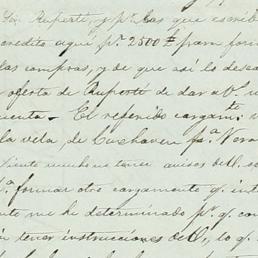 Ruperti, y pr. las que escrib
credito aquí pr. 2500 £ para for
las compras, y de que así lo desea
oferta de Ruperti de dar abl. u
uenta. — El referido cargamto.
la vela de Cuxhaven pa. Vera
siento mucho no tener avisos de V.
formar otro cargamento q. int
nte me he determinado pr. q. con
tener instrucciones de V., lo q.